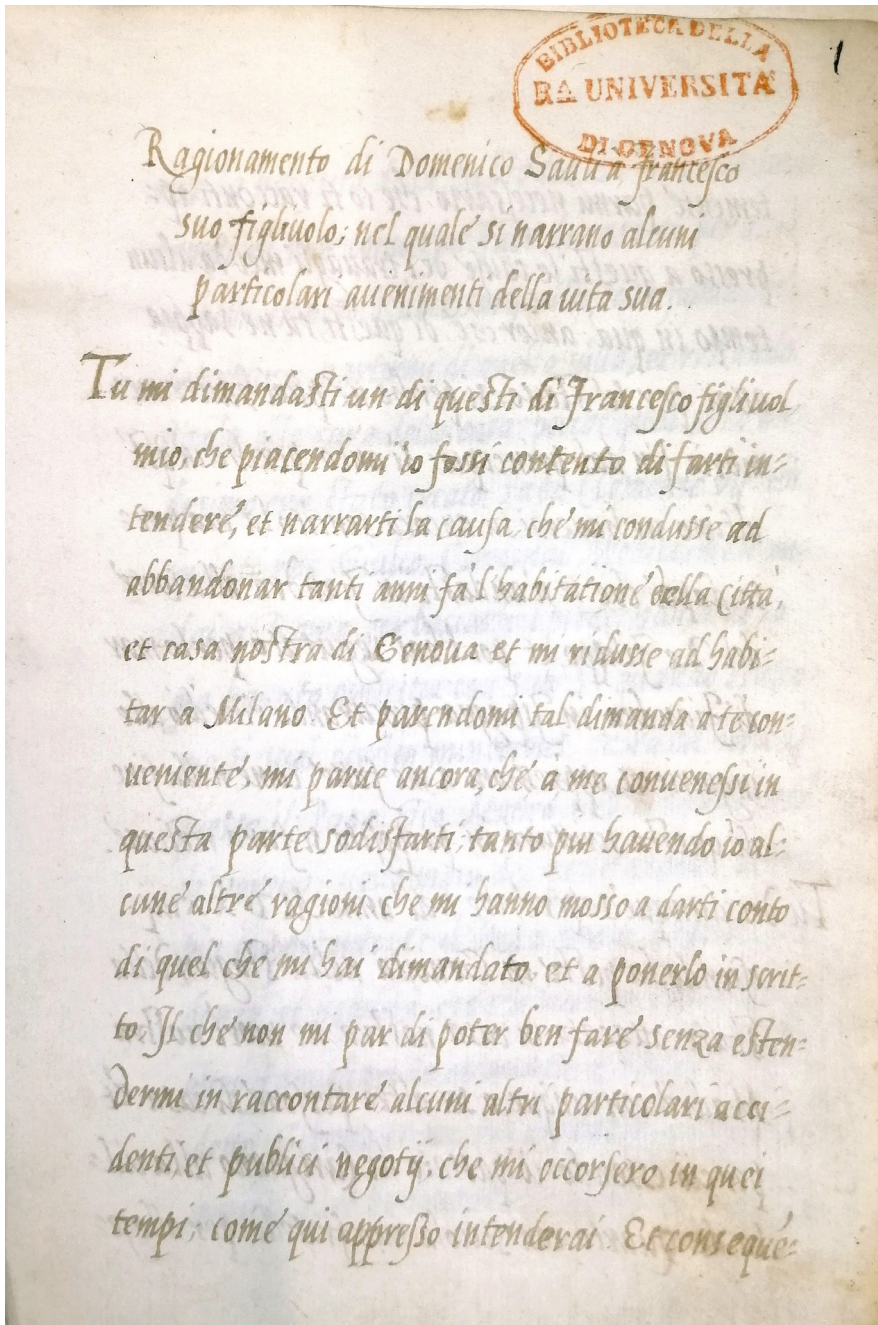 1
BIBLIOTECA DELLA
RA UNIVERSITA
DI GENOVA
Ragionamento di Domenico Sauli a francesco
suo figliuolo; nel quale si narrano alcuni
particolari avenimenti della uita sua.
Tu mi dimandasti un di questi di Francesco figliuol
mio, che piacendomi io fossi contento di farti in=
tendere, et narrarti la causa, che mi condusse ad
abbandonar tanti anni fa l'habitatione della Città,
et casa nostra di Genova et mi ridusse ad habi=
tar a Milano. Et parendomi tal dimanda a te con=
ueniente, mi parue ancora, che a me conuenessi in
questa parte sodisfarti; tanto piu hauendo io al=
cune altre ragioni, che mi hanno mosso a darti conto
di quel che mi hai dimandato, et a ponerlo in scrit=
to. Il che non mi par di poter ben fare senza esten=
dermi in raccontare alcuni altri particolari acci=
denti, et publici negotij, che mi occorsero in quei
tempi; come qui appresso intenderai. Et conseque=